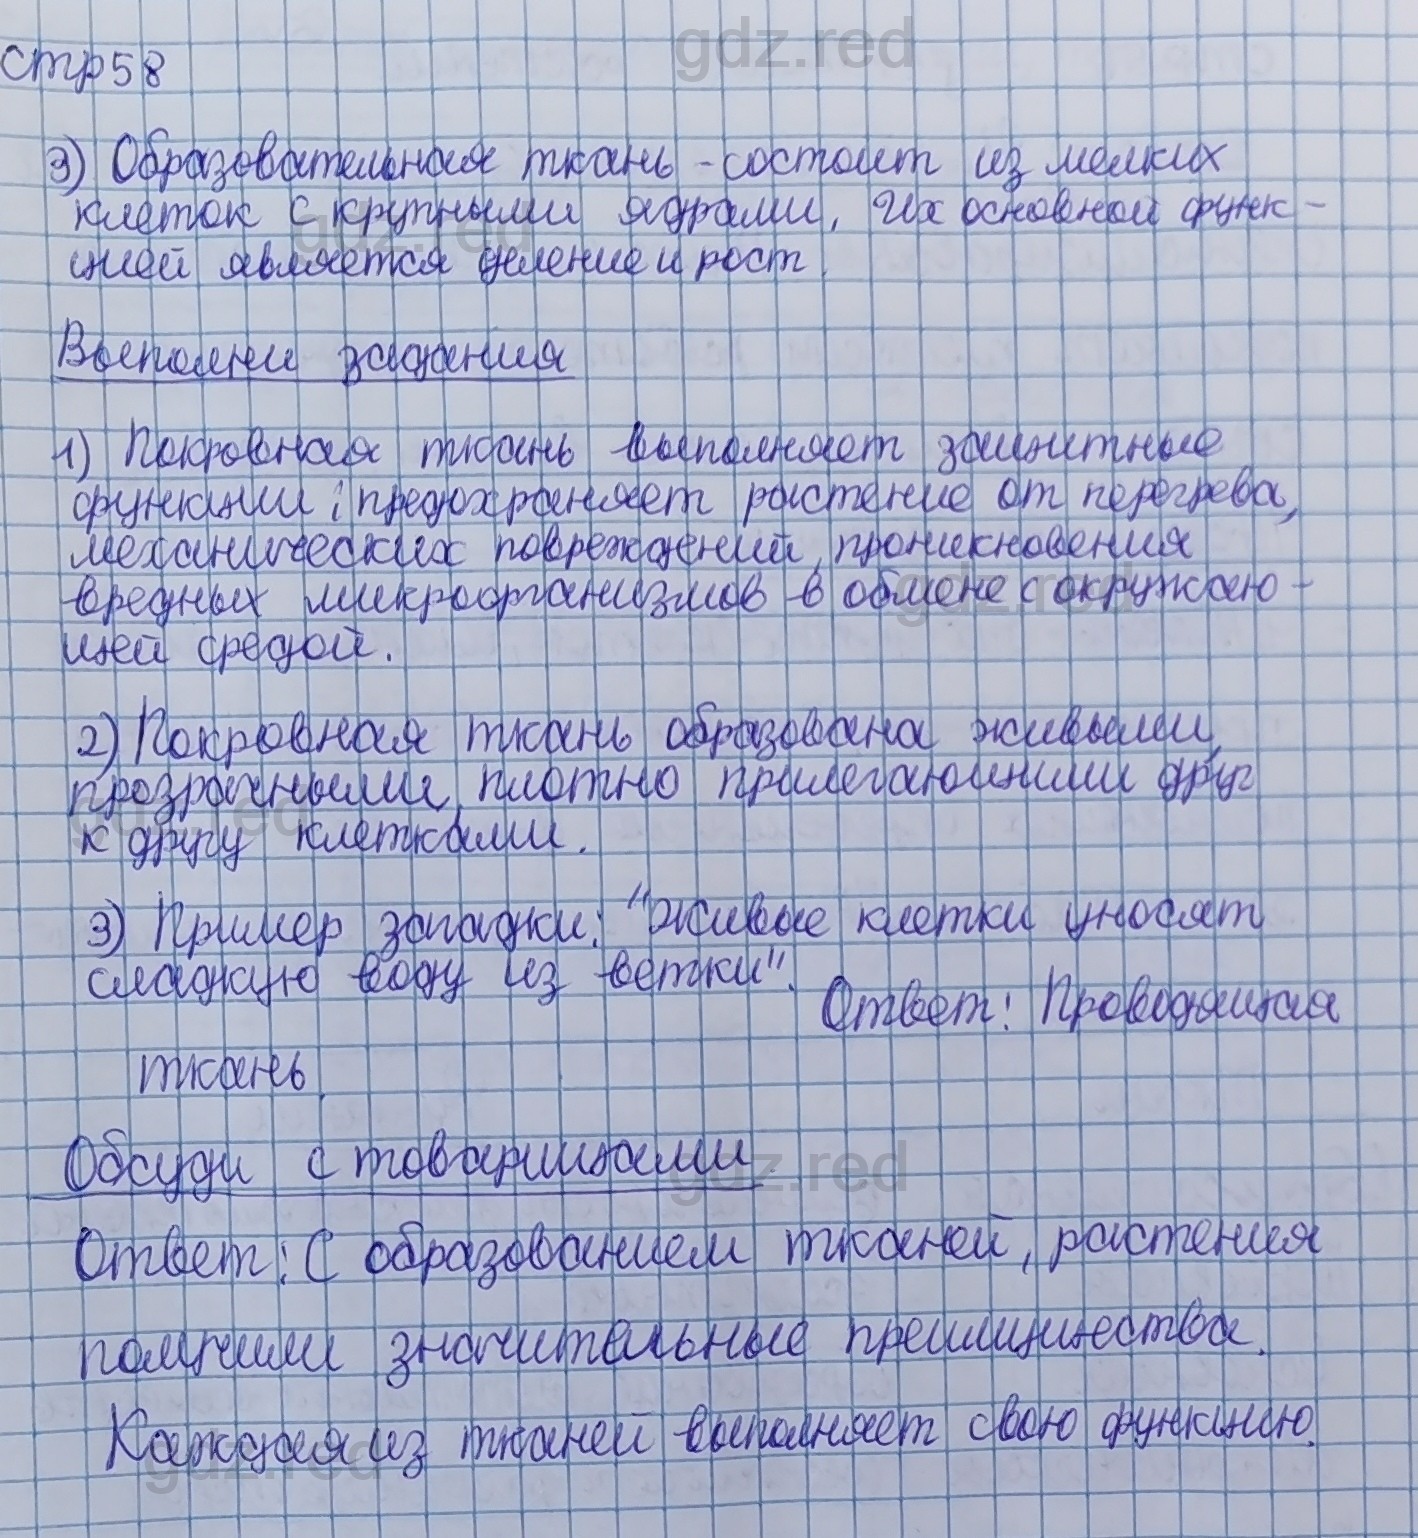 gdz.red
стр58
3) Образовательная ткань - состоит из мелких
клеток с крупными ядрами, Их основной функ-
цией является деление и рост.
gdz.red
Выполни задания
1) Покровная ткань выполняет защитные
функции; предохраняет растение от перегрева,
механических повреждений, проникновения
вредных микроорганизмов в обмене с окружаю-
gdz.red
щей средой.
2) Покровная ткань образована живыми,
прозрачными, плотно прилегающими друг
gdz.red
к другу клетками.
3) Пример загадки: "Живые клетки уносят
сладкую воду из ветки".
Ответ: Проводящая
ткань.
Обсуди с товарищами.
gdz.red
Ответ: С образованием тканей, растения
получили значительные преимущества.
Каждая из тканей выполняет свою функцию.
gdz.red